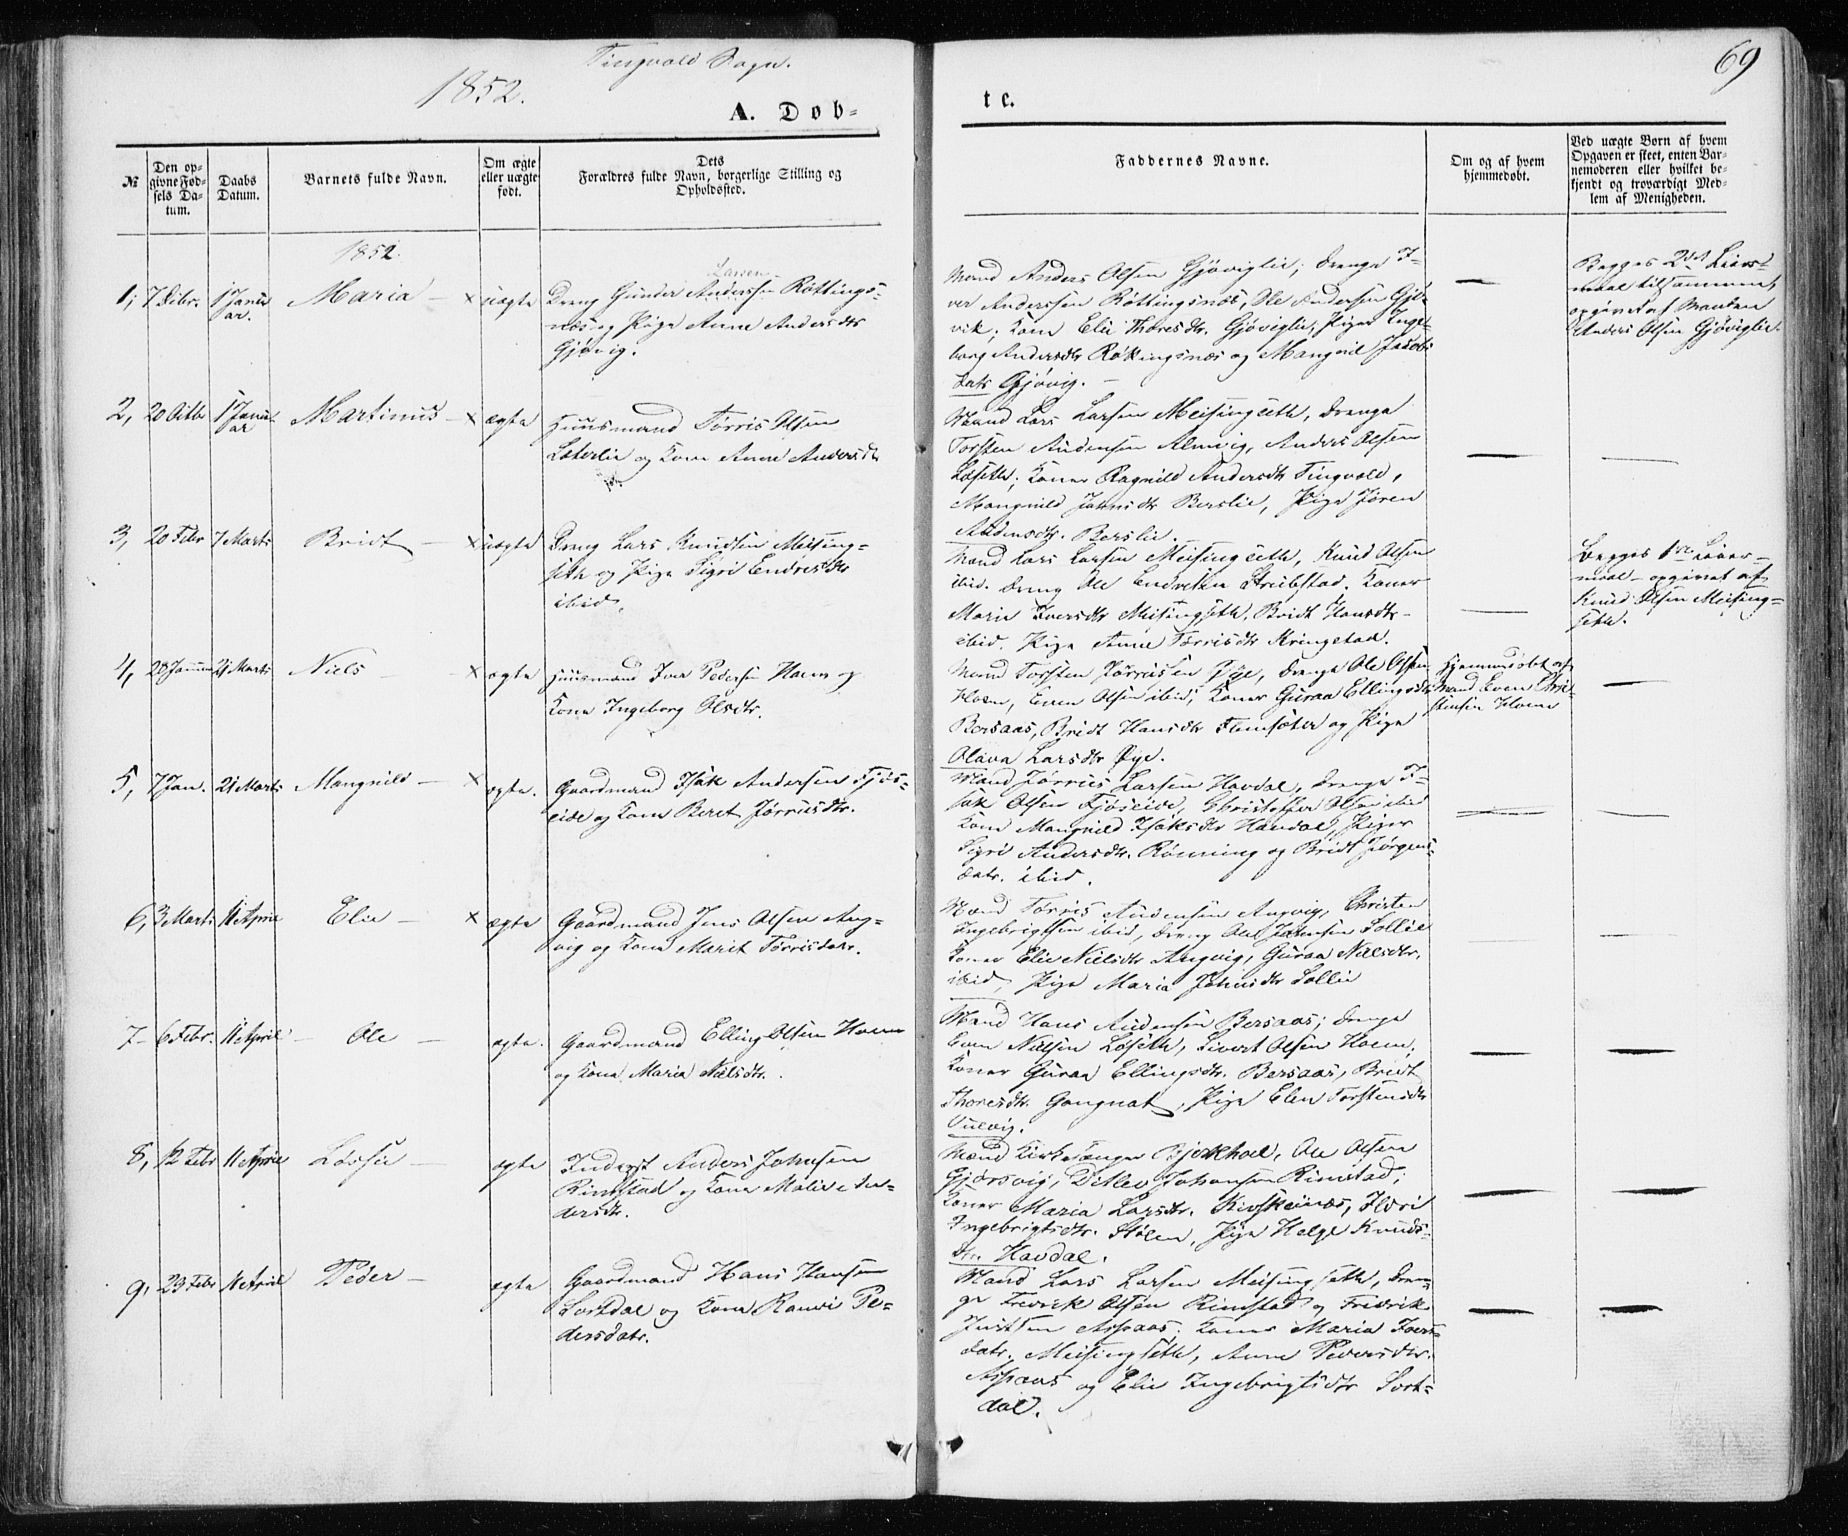 Tingvold Sogn.
1852.
69
A. Døb-
te.
№
Den op-
givne Fød-
sels Da-
tum.
Daabs
Datum.
Barnets fulde Navn.
Om ægte
eller uægte
født.
Dets
Forældres fulde Navn, borgerlige Stilling og
Opholdssted.
Faddernes Navne.
Om og af hvem
hjemmedøbt.
Ved uægte Børn af hvem
Opgaven er skeet, enten Bar-
nemoderen eller hvilket be-
kjendt og troværdigt Med-
lem af Menigheden.
1852.
1, 7 Dcbr. 1 Janu-
ar. Maria — × uægte
Larsen
Dreng Gunder Anderssen Røttings-
næs og Pige Anne Andersdtr
Gjøvig.
Mand Anders Olsen Gjøviglie; Drenge I-
ver Anderssen Røttingsnæs, Ole Andersen Gjø-
vik; Kone Elie Thoresdtr. Gjøviglie, Piger Inge-
borg Andersdtr Røttingsnæs og Mangnil Jacobs
datr Gjøvig. —
—
Begges 2det Leiers-
maal tilsammen,
opgivet af Manden
Anders Olsen Gjøviglie.
2, 20 Octbr 1 Janu-
ar Martinus — × ægte
Huusmand Tørris Olsen
Løterlie og Kone Anne Andersdtr
Mænd Lars Larsen Meisingseth, Drenge
Torsten Audensen Almvig, Anders Olsen
Løseth; Koner Ragnild Andersdtr Tingvold,
Mangnild Johnsdtr Berslie, Pige Jøren
Audensdtr. Berslie.
3, 20 Febr 7 Marts Bridt — × uægte
Dreng Lars Knudsen Meising-
seth og Pige Sigri Endresdtr
ibid.
Mænd Lars Larsen Meisingseth, Knud Olsen
ibid. Dreng Ole Endresen Strupstad. Koner
Marie Iversdtr Meisingseth, Bridt Hansdtr.
ibid. Pige Anne Tørrisdtr Kringstad.
Begges 1ste Leier-
maal — opgivet af
Knud Olsen Meising-
seth.
4, 28 Januar 21 Marts Niels — × ægte
Huusmand Iver Pedersen Hoem og
Kone Ingeborg Olsdtr.
Mand Torsten Jørrissen Øye, Drenge Ole Olsen
Hoem, Even Olsen ibid; Koner Guraa Ellingsdtr
Bersaas, Bridt Hansdtr Flemsæter og Pige
Olava Larsdtr Øye.
Hjemmedøbt af
Mand Even Chri-
stensen Hoem
—
5, 7 Jan. 21 Marts Mangnild — × ægte.
Gaardmand Isak Andersen Fjøs-
eide og Kone Beret Jørrisdtr.
Mand Jørris Larsen Havdal, Drenge I-
sak Olsen Fjøseide, Christopher Olsen ibid
Kone Mangnild Isaksdtr Havdal, Piger
Sigri Andersdtr. Rønning og Bridt Jørgens-
datr. ibid.
6, 3 Marts 11 April Elie — × ægte
Gaardmand Jens Olsen Ang-
vig og Kone Marit Tørrisdatr.
Mænd Tørris Audensen Angvig, Christen
Ingebrigtsen ibid, Dreng Ole Johnsen Sollie
Koner Elie Nielsdtr Angvig, Guraa Nielsdtr.
ibid, Pige Maria Johnsdtr Sollie
7 — 6 Febr. 11 April — Ole — ægte.
Gaardmand Elling Olsen Hoem
og Kone Maria Nielsdtr.
Mand Hans Audensen Bersaas; Drenge
Even Nielsen Løseth, Sivert Olsen Hoem;
Koner Guraa Ellingsdtr. Bersaas, Bridt
Thoresdtr. Gangnat, Pige Elen Torstensdtr
Vulvig.
8, 12 Febr 11 April Lovise — ægte
Inderst Anders Johnsen
Rimstad og Kone Malene An-
dersdtr.
Mænd Kirkesanger Bjerkhoel, Ole Olsen
Gjørsvig, Ditlev Johansen Rimstad;
Koner Maria Larsdtr. Kirskeines, Ildri
Ingebrigtsdtr. Stølen, Pige Helge Knuds-
dtr. Havdal.
9, 23 Febr 11 April Peder — ægte
Gaardmand Hans Hansen
Sortdal og Kone Ranvei Pe-
dersdatr.
Mand Lars Larsen Meisingseth, Dren-
ge Fredrik Olsen Rimstad og Fredrik
Justsen Aspaas. Koner Maria Ivers-
datr. Meisingseth, Anne Pedersdtr.
Aspaas og Elie Ingebrigtsdtr Sort-
dal.